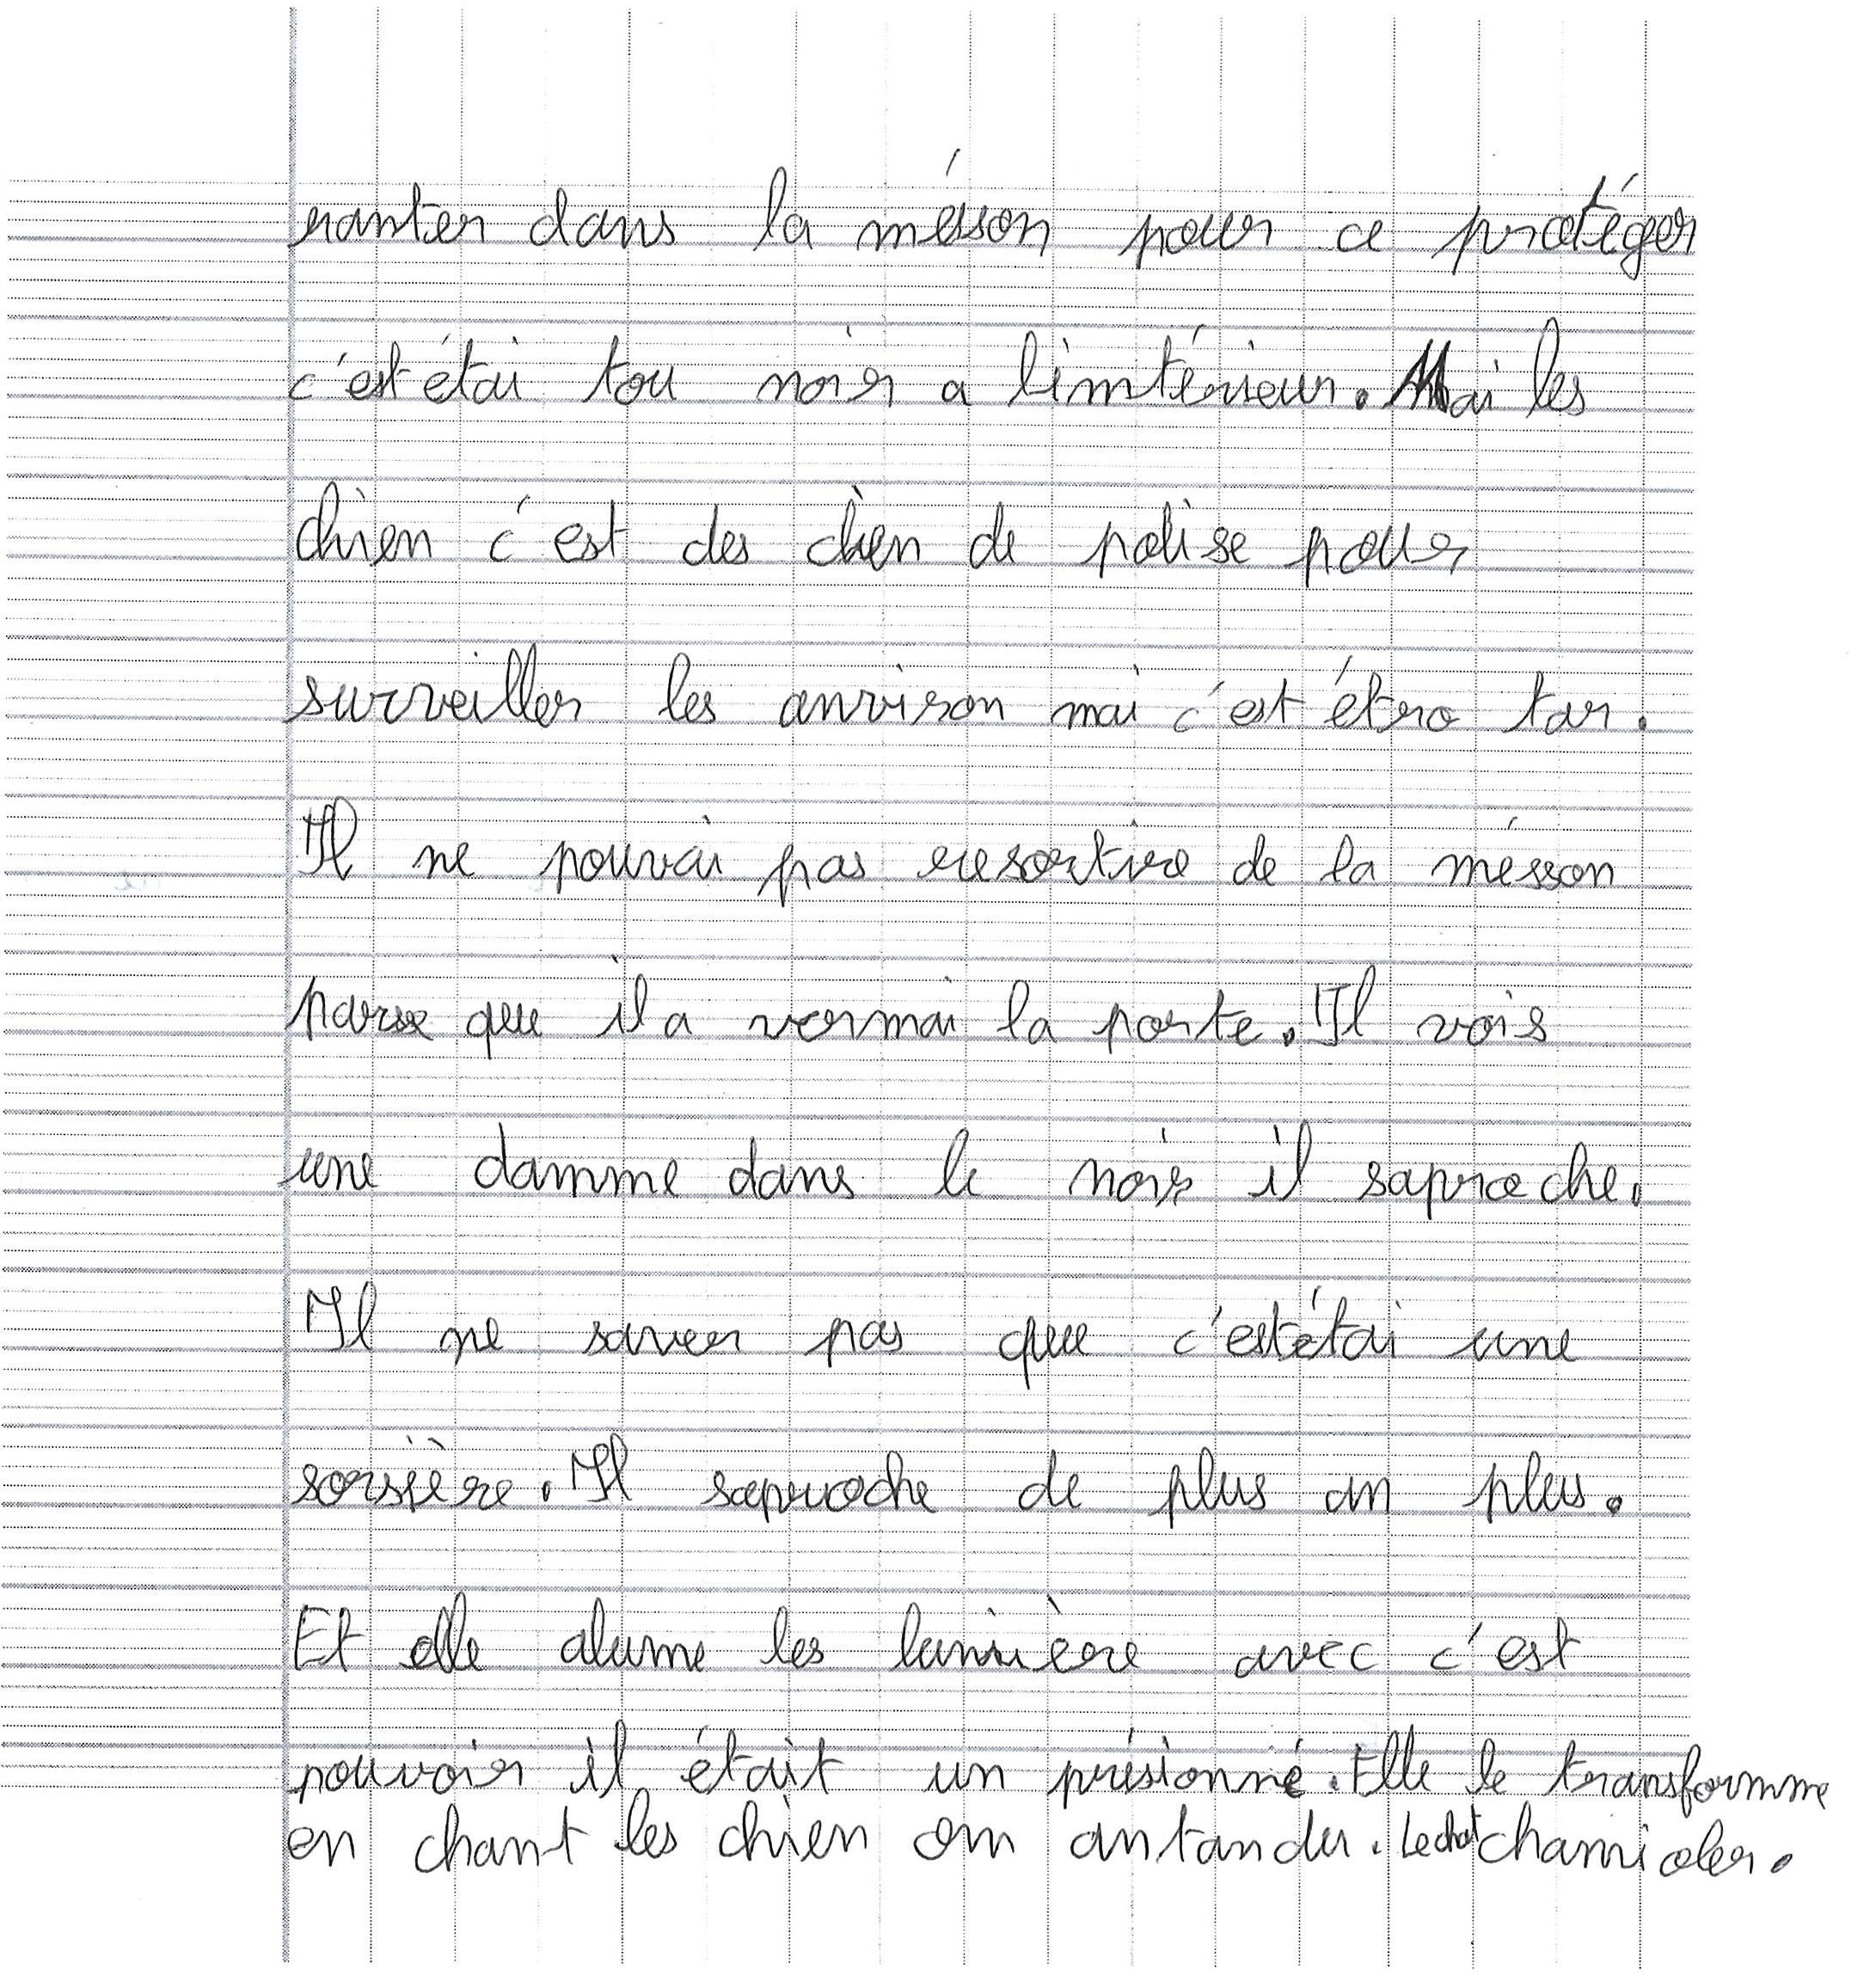 ranter dans la mésson pour ce protéger
c'est étai tou noir a l'intérieur. Mai les
chien c'est des chien de polise pour
surveiller les anvison mai c'est étro tar.
Il ne pouvai pas resortire de la mésson
parse que il a vermai la porte. Il vois
une damme dans le noir il saproche.
Il ne saver pas que c'est étai une
sorsière. Il saproche de plus an plus.
Et elle alume les lumière avec c'est
pouvoir il était un prisionné. Elle le transformme
en chant les chien on antandu. Le chat